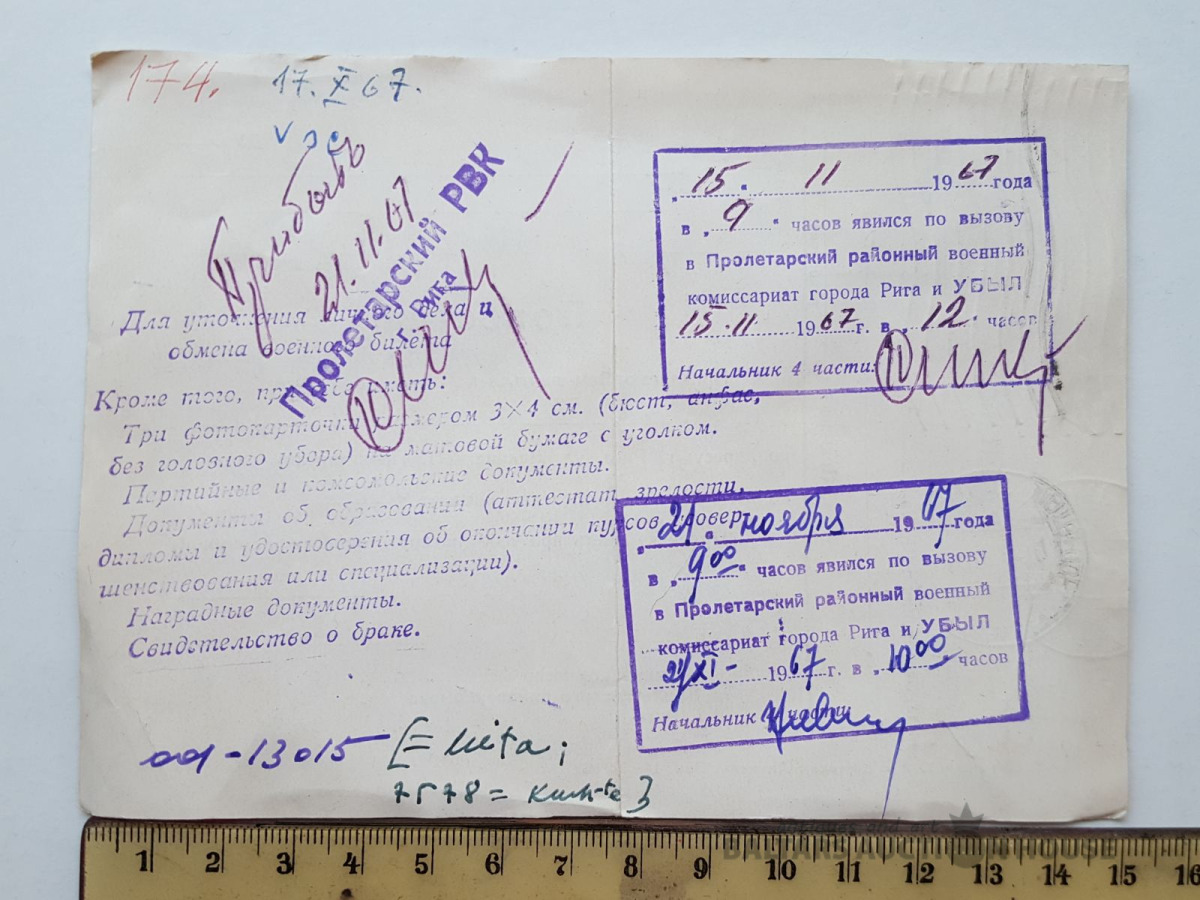 174.
17.X 67.
Прибыть
21.11.67
Пролетарский РВК
г. Рига
Для уточнения личного дела и
обмена военного билета
Кроме того, при себе иметь:
Три фотокарточки размером 3×4 см. (бюст, анфас,
без головного убора) на матовой бумаге с уголком.
Партийные и комсомольские документы.
Документы об образовании (аттестат зрелости,
дипломы и удостоверения об окончании курсов усовер-
шенствования или специализации).
Наградные документы.
Свидетельство о браке.
-13015
7578 =
„15“ 11 1967 года
в „9“ часов явился по вызову
в Пролетарский районный военный
комиссариат города Рига и УБЫЛ
15.11 1967 г. в „12“ часов
Начальник 4 части:
„21“ ноября 1967 года
в „9 00“ часов явился по вызову
в Пролетарский районный военный
комиссариат города Рига и УБЫЛ
21/XI- 1967 г. в „10 00“ часов
Начальник 4 части:
BALTARS AUCTION HOUSE
1 2 3 4 5 6 7 8 9 10 11 12 13 14 15 16